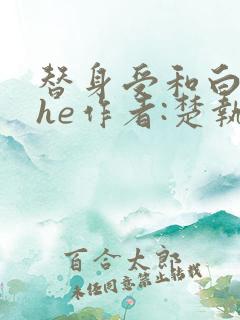 替身受和白
he作者:楚執
百合太郎
未经同意禁止转载